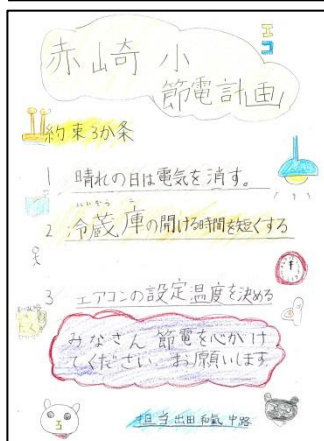 エコ
赤崎小
節電計画
約束3か条
1 晴れの日は電気を消す。
れいぞうこ
2 冷蔵庫の開ける時間を短くする
3 エアコンの設定温度を決める
みなさん 節電を心がけ
てください お願いします
担当 出田 和氣 中路